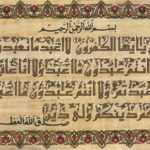 بسم الله الرحمن الرحيم
قل يا أيها الكافرون لا أعبد ما تعبدون
ولا أنتم عابدون ما أعبد ولا أنا عابد
ما عبدتم ولا أنتم عابدون ما أعبد
لكم دينكم ولي دين
صدق الله العظيم